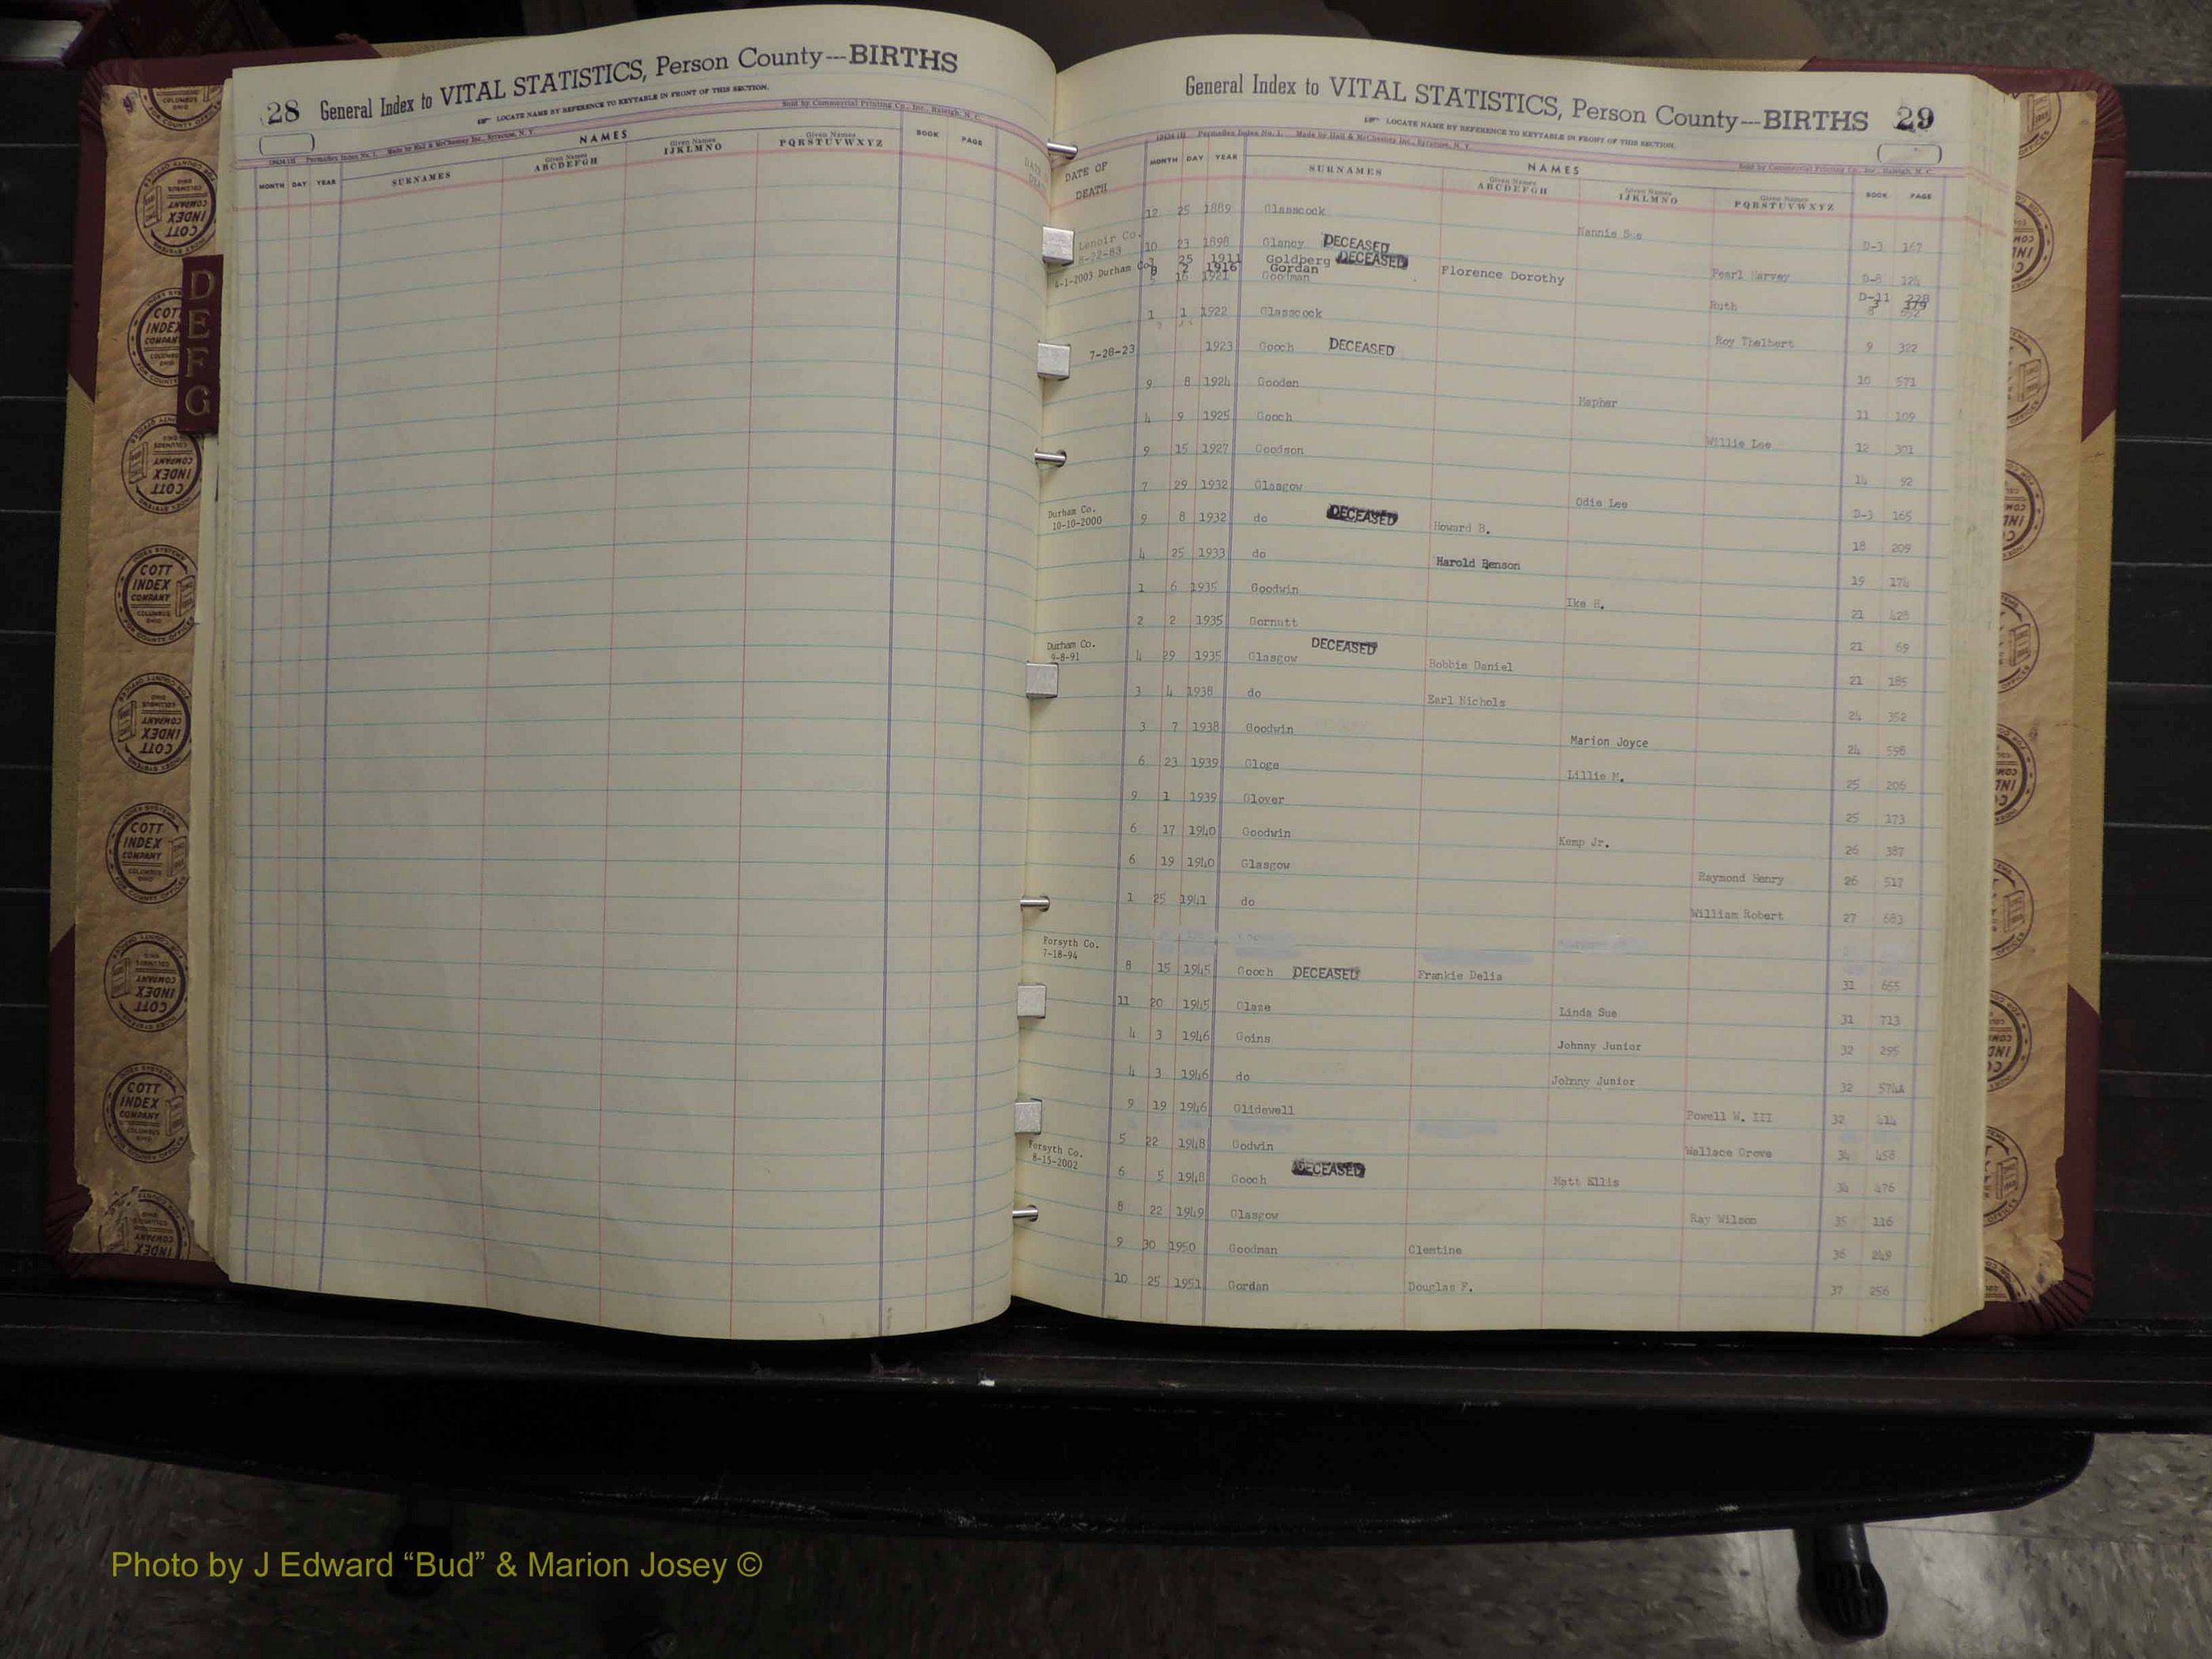 28 General Index to VITAL STATISTICS, Person County---BIRTHS
LOCATE NAME BY REFERENCE TO KEYTABLE IN FRONT OF THIS SECTION.
Sold by Commercial Printing Co., Inc., Raleigh, N. C.
Made by Hall & McChesney Inc., Syracuse, N. Y.
NAMES
MONTH DAY YEAR SURNAMES Given Names ABCDEFGH Given Names IJKLMNO Given Names PQRSTUVWXYZ BOOK PAGE
D
E
F
G
COTT INDEX COMPANY
General Index to VITAL STATISTICS, Person County---BIRTHS 29
LOCATE NAME BY REFERENCE TO KEYTABLE IN FRONT OF THIS SECTION.
Permadex Index No. 1. Made by Hall & McChesney Inc., Syracuse, N. Y.
Sold by Commercial Printing Co., Inc., Raleigh, N. C.
NAMES
DATE OF DEATH MONTH DAY YEAR SURNAMES Given Names ABCDEFGH Given Names IJKLMNO Given Names PQRSTUVWXYZ BOOK PAGE
12 25 1889 Glasscock Nannie Sue D-3 167
Lenoir Co. 8-22-83 10 23 1898 Glancy DECEASED Pearl Harvey D-8 124
25 1911 Goldberg DECEASED Florence Dorothy D-11 228
4-1-2003 Durham Co. 8 2 1916 Gordan 3 379
16 1921 Goodman Ruth 8
1 1 1922 Glasscock Roy Thelbert 9 322
7-28-23 1923 Gooch DECEASED 10 571
9 8 1924 Gooden Mapher 11 109
4 9 1925 Gooch Willie Lee 12 301
9 15 1927 Goodson 14 92
7 29 1932 Glasgow Odie Lee D-3 165
Durham Co. 10-10-2000 9 8 1932 do DECEASED Howard B. 18 209
4 25 1933 do Harold Benson 19 174
1 6 1935 Goodwin Ike B. 21 428
2 2 1935 Gornutt 21 69
Durham Co. 9-8-91 4 29 1935 Glasgow DECEASED Bobbie Daniel 21 185
3 4 1938 do Earl Nichols 24 352
3 7 1938 Goodwin Marion Joyce 24 598
6 23 1939 Gloge Lillie M. 25 206
9 1 1939 Glover 25 173
6 17 1940 Goodwin Kemp Jr. 26 387
6 19 1940 Glasgow Raymond Henry 26 517
1 25 1941 do William Robert 27 683
Forsyth Co. 7-18-94
8 15 1945 Gooch DECEASED Frankie Delia 31 655
11 20 1945 Glaze Linda Sue 31 713
4 3 1946 Goins Johnny Junior 32 295
4 3 1946 do Johnny Junior 32 574A
9 19 1946 Glidewell Powell W. III 32 414
5 22 1948 Godwin Wallace Grove 34 458
Forsyth Co. 8-15-2002 6 5 1948 Gooch DECEASED Matt Ellis 34 476
8 22 1949 Glasgow Ray Wilson 35 116
9 30 1950 Goodman Clemtine 36 249
10 25 1951 Gordan Douglas F. 37 256
Photo by J Edward “Bud” & Marion Josey ©